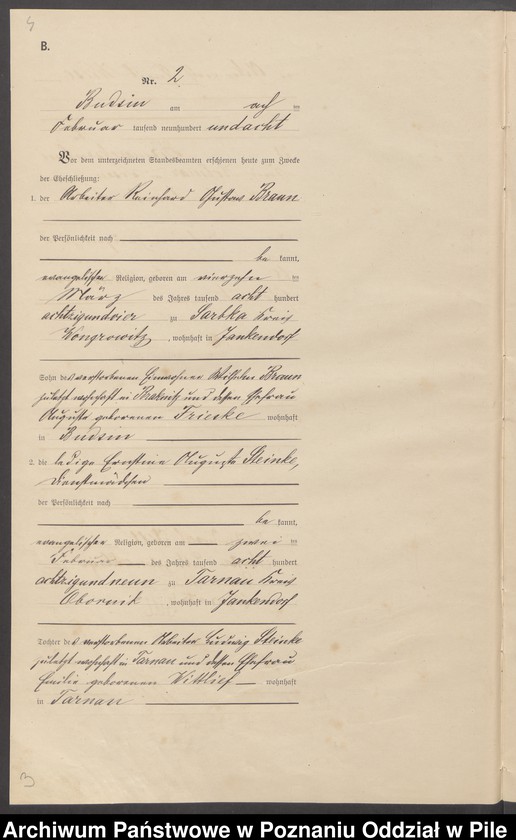 B.
Nr. 2.
Budsin am acht ten
Februar tausend neunhundert und acht
Vor dem unterzeichneten Standesbeamten erschienen heute zum Zwecke
der Eheschließung:
1. der Arbeiter Reinhard Gustav Braun
der Persönlichkeit nach
be kannt,
evangelischer Religion, geboren am vierzehn ten
März des Jahres tausend acht hundert
achtzig und vier zu Sarbka Kreis
Wongrowitz, wohnhaft in Jankendorf
Sohn des verstorbenen Einwohner Wilhelm Braun
zuletzt wohnhaft in und dessen Ehefrau
Auguste geborenen wohnhaft
in Budsin
2. die ledige Ernstine Auguste Steinke,
Dienstmädchen
der Persönlichkeit nach
be kannt,
evangelischer Religion, geboren am zwei ten
Februar des Jahres tausend acht hundert
achtzig und neun zu Tarnau Kreis
Obornik, wohnhaft in Jankendorf
Tochter des verstorbenen Arbeiter Ludwig Steinke
zuletzt wohnhaft in Tarnau und dessen Ehefrau
Emilie geborenen Wittlief wohnhaft
in Tarnau
Archiwum Państwowe w Poznaniu Oddział w Pile